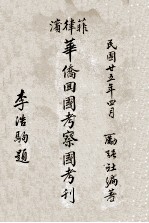 民國廿五年四月
勵語社編著
菲律濱
華僑回國考察團考刊
李浩駒題